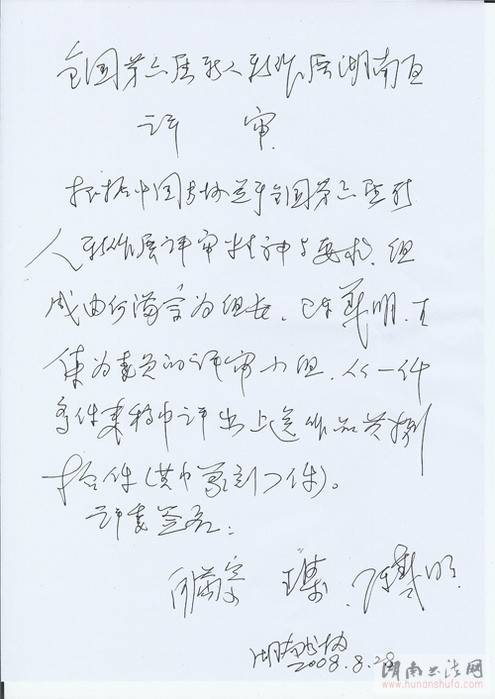 全国第六届新人新作展湖南区
评 审
根据中国书协关于全国第六届新
人新作展评审精神与要求，组
成由何满宗为组长、陈羲明、王
集为委员的评审小组，从一
多件来稿中评出上送作品共捌
拾件(其中篆刻7件)。
评委签名：
何满宗 王集 陈羲明
湖南书协
2008.8.28
湖南书法网
www.hunanshufa.com